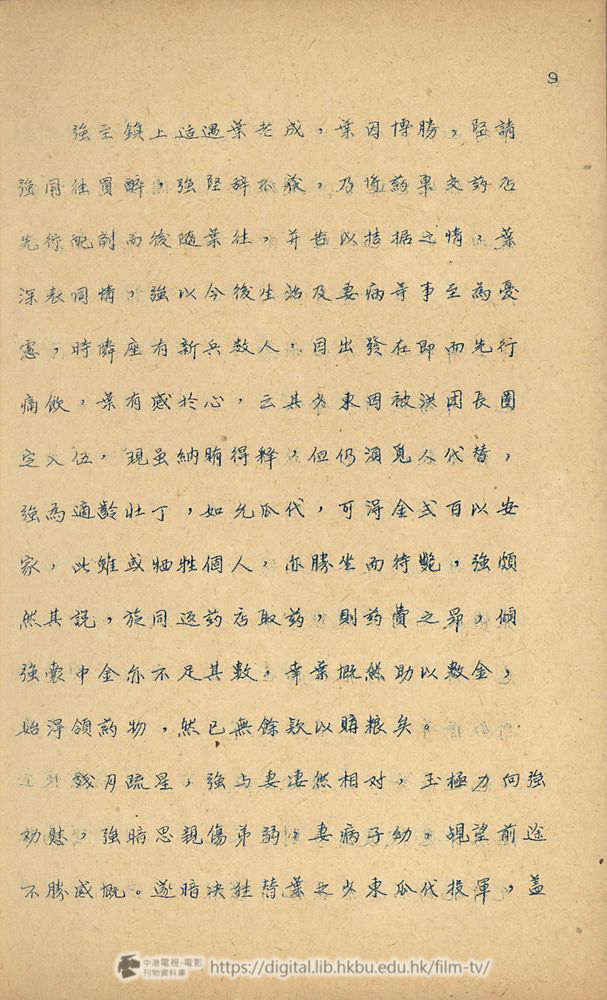 9
強至鎮上适遇葉老成，葉因博勝，堅請
強同往買醉，強堅辞不获，乃将药单交药店
先行配剂而後随葉往，并告以拮据之情，葉
深表同情，強以今後生治及妻病等事至為憂
憲，時隣座有新兵数人，因出發在即而先行
痛飲，葉有感於心，云其少東因被洪団長圈
定入伍，現虽納賄得释，但仍須覓人代替，
強為適齡壮丁，如允瓜代，可得金弍百以安
家，此雖或牺牲個人，亦勝坐而待斃，強頗
然其説，旋同返药店取药，則药費之昂，傾
強囊中金亦不足其數，幸葉慨然助以數金，
始得領药物，然已無餘欵以購粮矣。
残月疏星，強与妻凄然相对，玉極力向強
劝慰，強暗思親傷弟弱，妻病子幼，覌望前途
不勝感慨。遂暗决往替葉之少東瓜代投軍，盖
中港電視·電影
刊物資料庫
https://digital.lib.hkbu.edu.hk/film-tv/